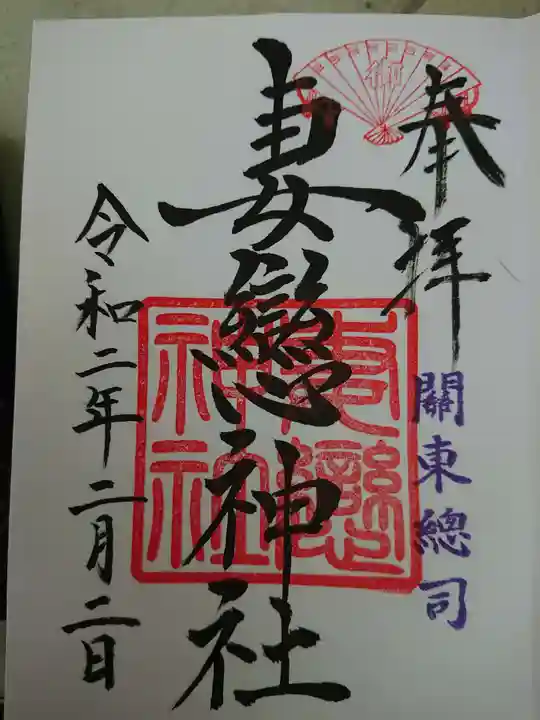 奉拝
關東總司
御
妻戀神社
妻戀神社
令和二年二月二日